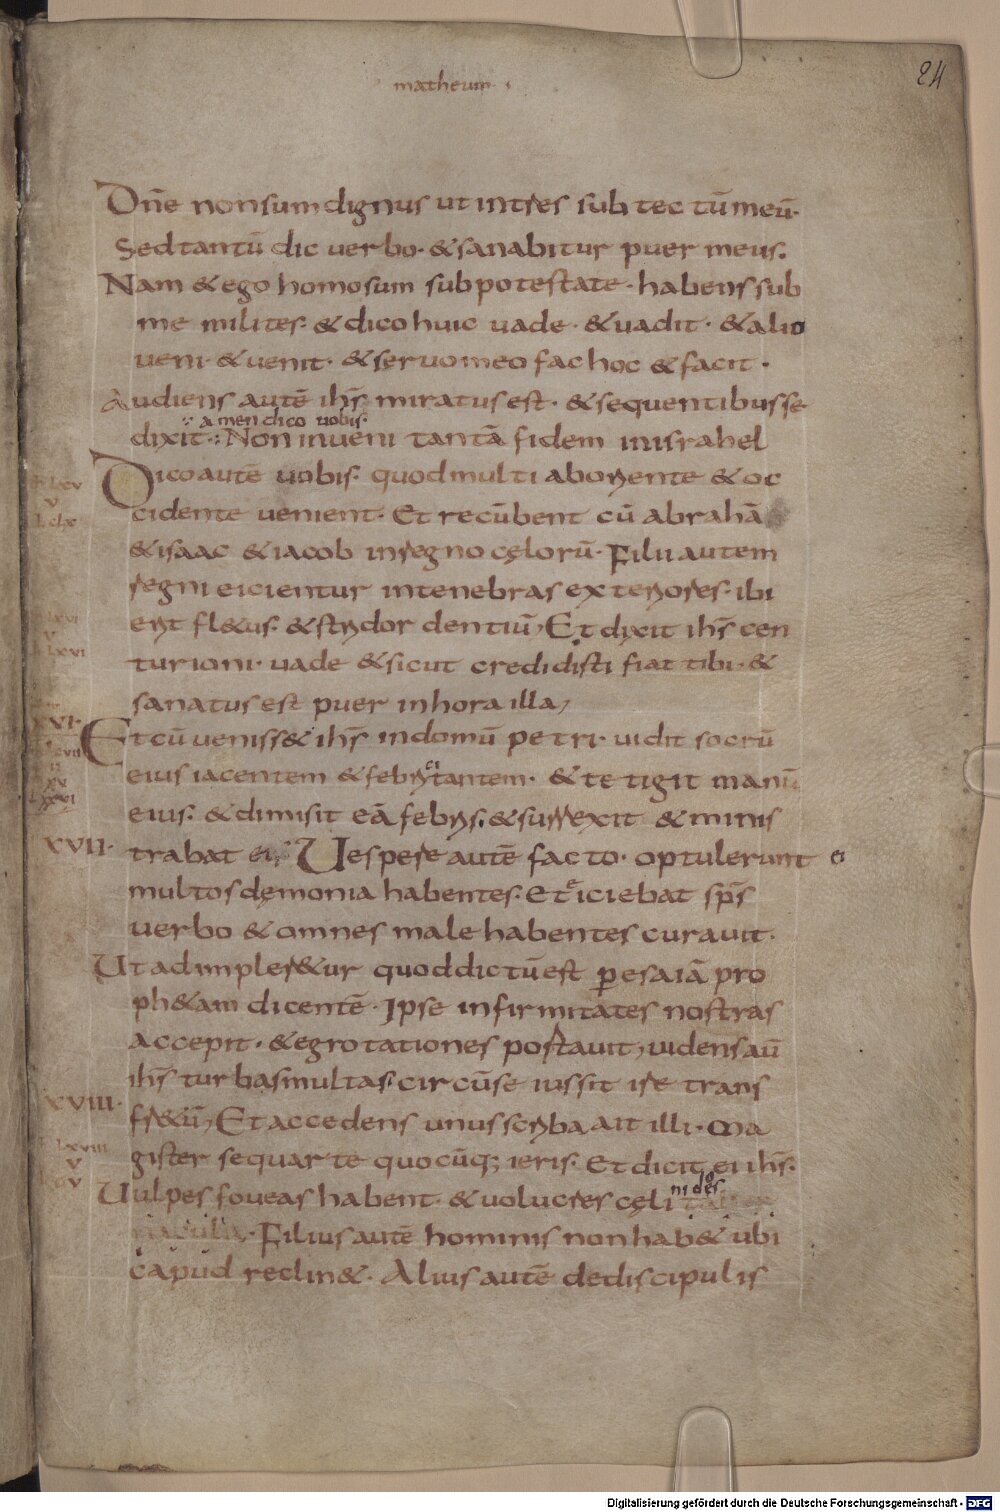 matheum
24
Dn̄e non sum dignus ut intres sub tectū meū.
Sed tantū dic verbo· & sanabitur puer meus.
Nam & ego homo sum sub potestate· habens sub
me milites· & dico huic vade· & vadit· & alio
veni· & venit· & servo meo fac hoc & facit·
Audiens autē ih̄s miratus est· & sequentibus se
amen dico vobis·
dixit·: Non inveni tantā fidem in israhel
Dico autē vobis· quod multi ab oriente & oc
cidente venient· Et recūbent cū abrahā
& isaac & iacob in regno cęlorū· Filii autem
regni eicientur in tenebras exteriores· ibi
erit fl&us· & stridor dentiū, Et dixit ih̄s cen
turioni· vade & sicut credidisti fiat tibi· &
sanatus est puer in hora illa,
XVI·
Et cū veniss& ih̄s in domū petri· vidit socrū
eius iacentem & febricitantem· & tetigit manū
eius· & dimisit eā febris· & surrexit & minis
XVII·
trabat eis Vespere autē facto· optulerunt ei
multos dęmonia habentes· Et eiciebat sp̄s
verbo & omnes male habentes curavit·
Ut adimpler&ur quod dictū est p̱ esaiā pro
ph&am dicentē· Ipse infirmitates nostras
accepit· & egrotationes portavit, videns aū
ih̄s turbas multas circū se iussit ire trans
XVIII·
fr&ū, Et accedens unus scriba ait illi· Ma
gister sequar te quocūq; ieris· Et dicit ei ih̄s·
Vulpes foveas habent· & volucres cęli nidos
Filius autē hominis non hab& ubi
capud reclin&· Alius autē de discipulis
Digitalisierung gefördert durch die Deutsche Forschungsgemeinschaft - DFG